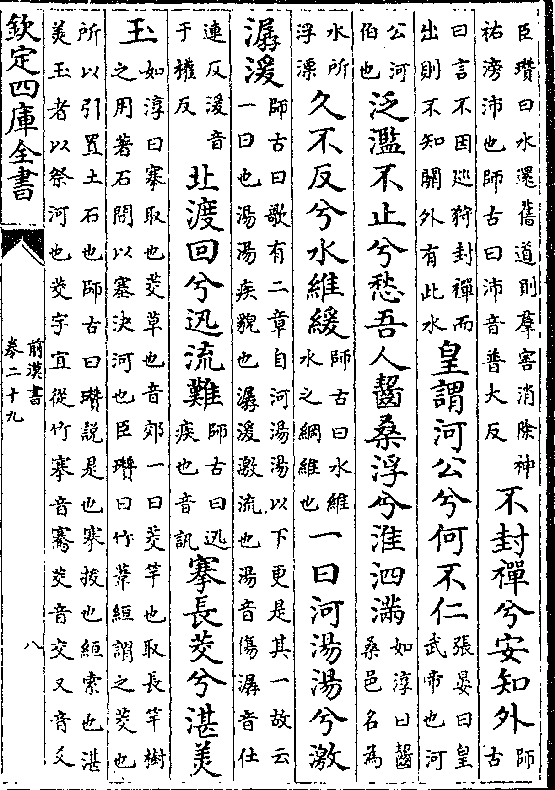 臣瓚曰水還舊道則羣害消除神
祐滂沛也師古曰沛音普大反
不封禪兮安知外
師
古
曰言不因巡狩封禪而
出則不知關外有此水
皇謂河公兮何不仁
張晏曰皇
武帝也河
公河
伯也
泛濫不止兮愁吾人齧桑浮兮淮泗滿
如淳曰齧
桑邑名為
水所
浮漂
久不反兮水維緩
師古曰水維
水之綱維也
一曰河湯湯兮激
潺湲
師古曰歌有二章自河湯湯以下更是其一故云
一曰也湯湯疾貌也潺湲激流也湯音傷潺音仕
連反湲音
于權反
北渡回兮迅流難
師古曰迅
疾也音訊
搴長茭兮湛美
玉
如淳曰搴取也茭草也音郊一曰茭竿也取長竿樹
之用著石間以塞決河也臣瓚曰竹葦絙謂之茭也
所以引置土石也師古曰瓚說是也搴拔也絙索也湛
美玉者以祭河也茭字宜從竹搴音騫茭音交又音爻
欽定四庫全書
前漢書
卷二十九
八